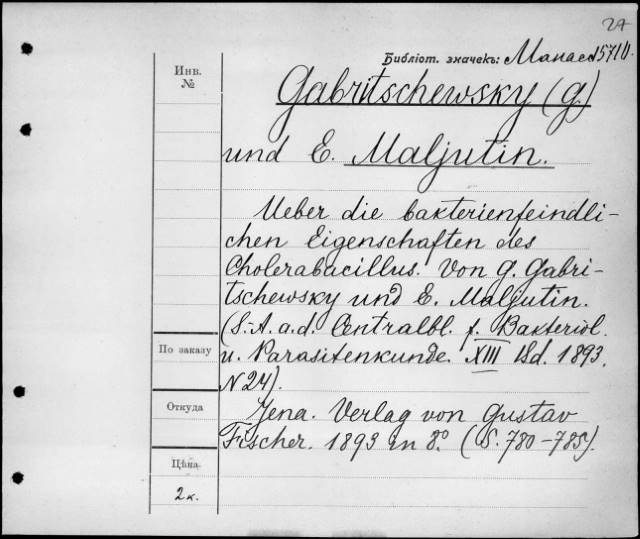 27
Библіот. значекъ: Манас 1571 D.
Инв.
№
Gabritschewsky (G.)
und E. Maljutin.
Ueber die bakterienfeindli-
chen Eigenschaften des
Cholerabacillus. Von G. Gabri-
tschewsky und E. Maljutin.
(S.-A. a. d. Centralbl. f. Bakteriol.
По заказу
u. Parasitenkunde. XIII Bd. 1893.
N 24).
Откуда
Jena. Verlag von Gustav
Fischer. 1893 in 8.º (S. 780-785).
Цѣна
2 к.